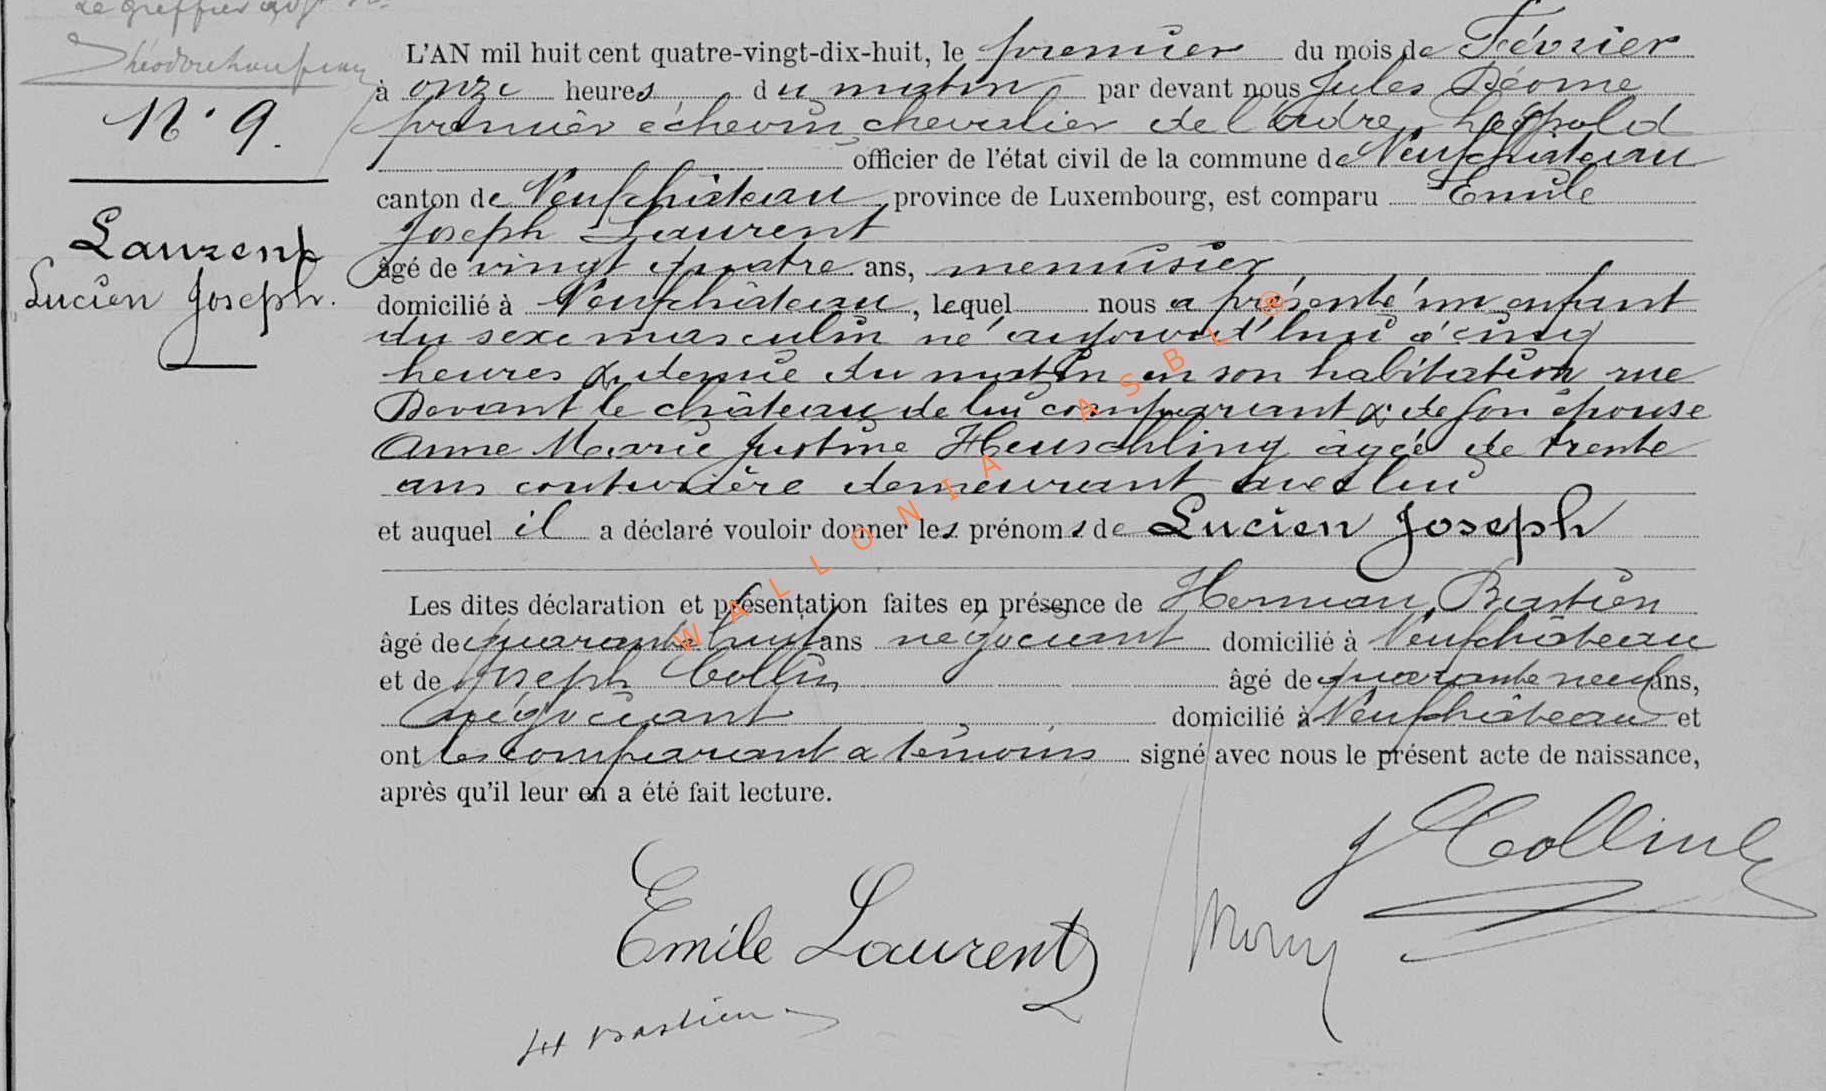 Le greffier adjt
N° 9.
Laurent
Lucien Joseph.
L'AN mil huit cent quatre-vingt-dix-huit, le premier du mois de Février
à onze heures du matin par devant nous Jules
premier échevin chevalier de l'ordre Léopold
officier de l'état civil de la commune de Neufchâteau
canton de Neufchâteau, province de Luxembourg, est comparu Emile
Joseph Laurent
âgé de vingt quatre ans, menuisier
domicilié à Neufchâteau, lequel nous a présenté un enfant
du sexe masculin né aujourd'hui à cinq
heures & demie du matin en son habitation rue
Devant le château de lui comparant & de son épouse
Anne Marie Justine Heuschling âgée de trente
ans couturière demeurant avec lui
et auquel il a déclaré vouloir donner les prénoms de Lucien Joseph
Les dites déclaration et présentation faites en présence de Herman Bastien
âgé de quarante huit ans négociant domicilié à Neufchâteau
et de Joseph Collin âgé de quarante neuf ans,
négociant domicilié à Neufchâteau et
ont les comparant & témoins signé avec nous le présent acte de naissance,
après qu'il leur en a été fait lecture.
J Collin
Emile Laurent
H Bastien
WALLONIA ASBL ®